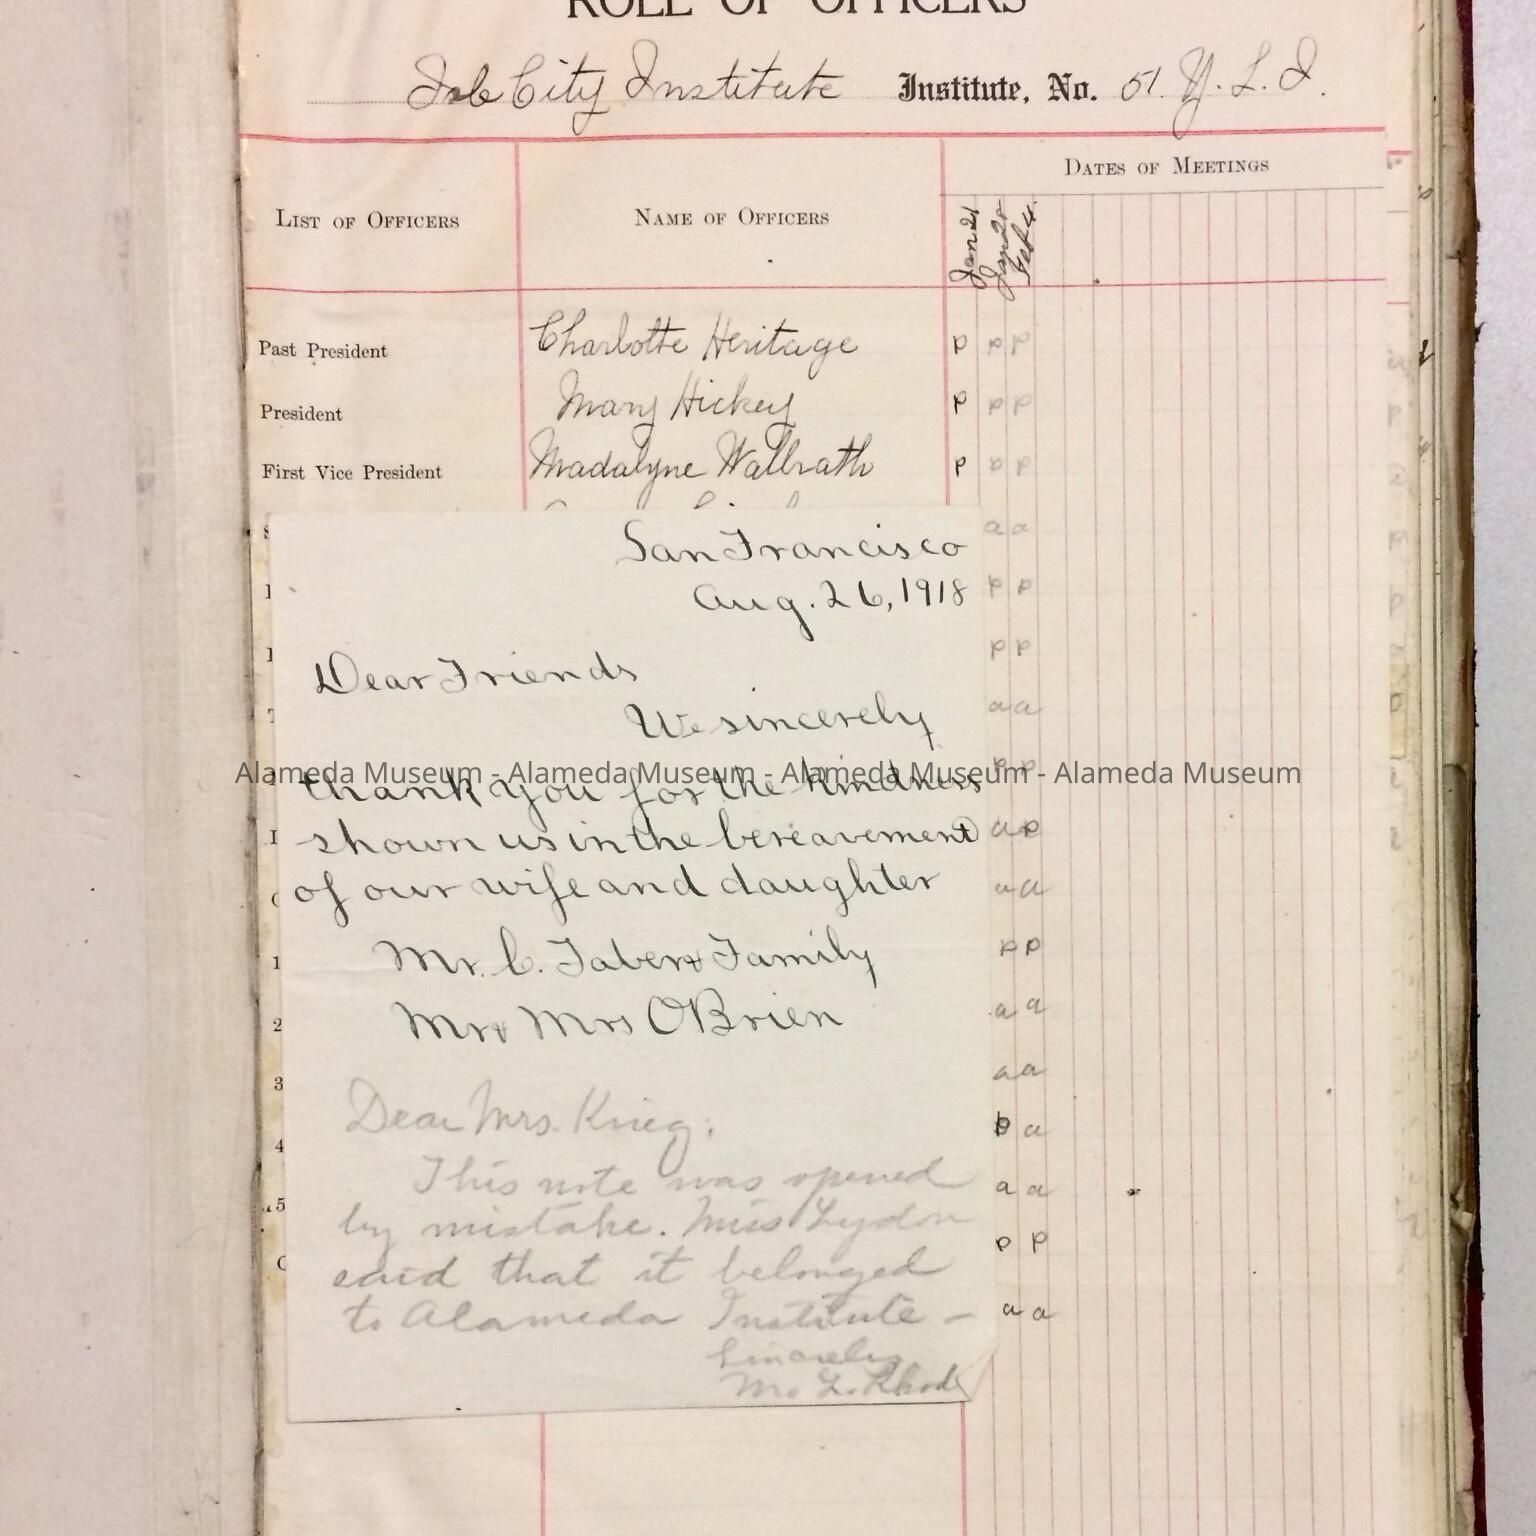 ROLL OF OFFICERS
Isle City Institute Institute, No. 51. Y. L. I.
LIST OF OFFICERS NAME OF OFFICERS DATES OF MEETINGS
Jan 21 Jan 28 Feb 4
Past President Charlotte Heritage P P P
President Mary Hickey P P P
First Vice President Madalyne Wallrath P P P
a a
San Francisco
Aug. 26, 1918 P P
P P
Dear Friends
We sincerely a a
thank you for the kindness P P
Alameda Museum - Alameda Museum - Alameda Museum - Alameda Museum
shown us in the bereavement a P
of our wife and daughter a a
Mr. C. Taber & Family P P
2 Mr & Mrs O'Brien a a
3 a a
Dear Mrs. Krieg: a
4
This note was opened a a
5 by mistake. Miss Lydon
said that it belonged P P
to Alameda Institute — a a
Sincerely